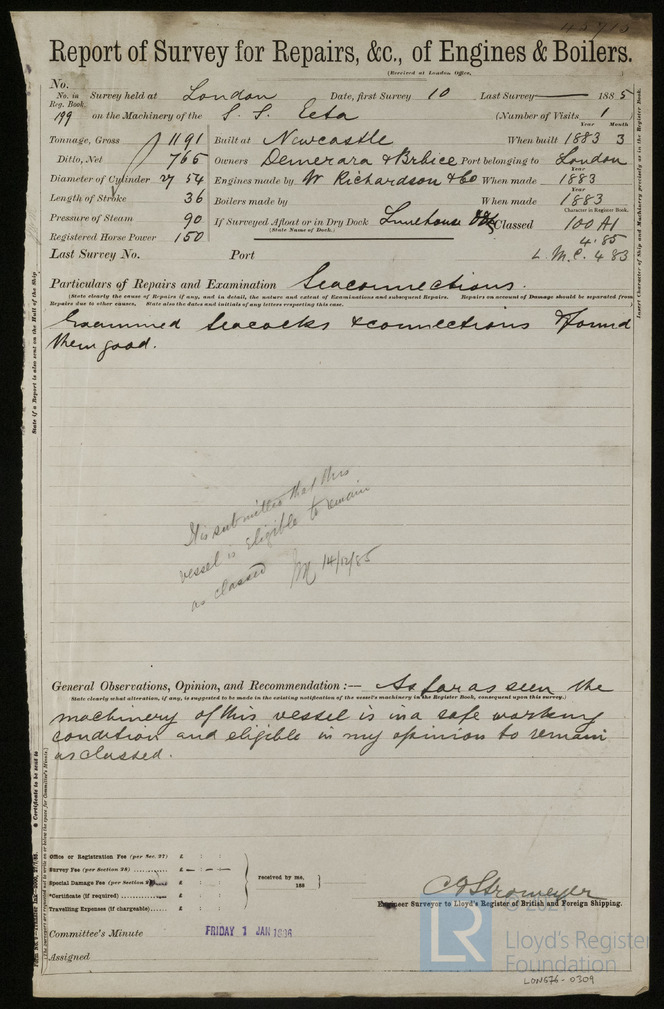 45715
Report of Survey for Repairs, &c., of Engines & Boilers.
(Received at London Office, )
No.
No. in Reg. Book. Survey held at London Date, first Survey 10 Last Survey 1885
199 on the Machinery of the S. S. Eeta (Number of Visits 1
Year Month
Tonnage, Gross 1191 Built at Newcastle When built 1883 3
Ditto, Net 765 Owners Demerara & Brbice Port belonging to London
Year
Diameter of Cylinder 27 54 Engines made by W Richardson & Co When made 1883
Year
Length of Stroke 36 Boilers made by When made 1883
Character in Register Book.
Pressure of Steam 90 If Surveyed Afloat or in Dry Dock Limehouse DDk Classed 100 A1
(State Name of Dock.)
4.85
Registered Horse Power 150
Last Survey No. Port L.M.C. 4 83
Particulars of Repairs and Examination Seaconnections.
(State clearly the cause of Repairs if any, and in detail, the nature and extent of Examinations and subsequent Repairs. Repairs on account of Damage should be separated from
Repairs due to other causes, State also the dates and initials of any letters respecting this case.
Examined Seacocks & connections & found
them good.
It is submitted that this
vessel is eligible to remain
as classed 14/12/85
General Observations, Opinion, and Recommendation :— As far as seen the
State clearly what alteration, if any, is suggested to be made in the existing notification of the vessel's machinery in the Register Book, consequent upon this survey.)
machinery of this vessel is in a safe working
condition and eligible in my opinion to remain
as classed.
Office or Registration Fee (per Sec. 27) £ : :
Survey Fee (per Section 28) £
Special Damage Fee (per Section £ : :
*Certificate (if required) £ : :
Travelling Expenses (if chargeable) £ : :
received by me,
188
C E Stromeyer
Engineer Surveyor to Lloyd's Register of British and Foreign Shipping.
Committee's Minute FRIDAY 1 JAN 1886
Assigned
State if a Report is also sent on the Hull of the Ship
* Certificate to be sent to
Insert Character of Ship and Machinery precisely as in the Register Book.
LR
Lloyd's Register
Foundation
LON576-0309